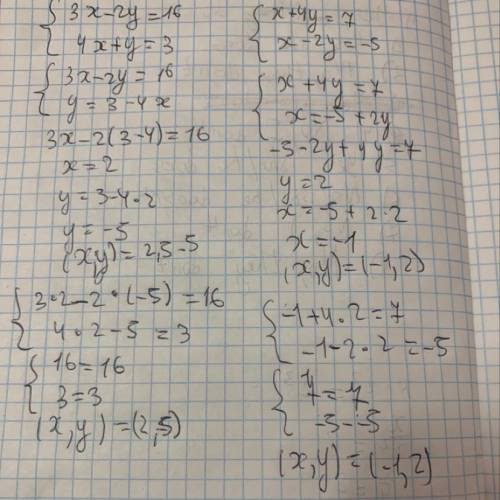 3x-2y=16
4x+y=3
3x-2y=16
y=3-4x
3x-2(3-4)=16
x=2
y=3-4·2
y=-5
(x,y)=2,5-5
3·2-2·(-5)=16
4·2-5=3
16=16
3=3
(x,y)=(2,5)
x+4y=7
x-2y=-5
x+4y=7
x=-5+2y
-5-2y+4y=7
y=2
x=-5+2·2
x=-1
(x,y)=(-1,2)
-1+4·2=7
-1-2·2=-5
7=7
-5--5
(x,y)=(-1,2)